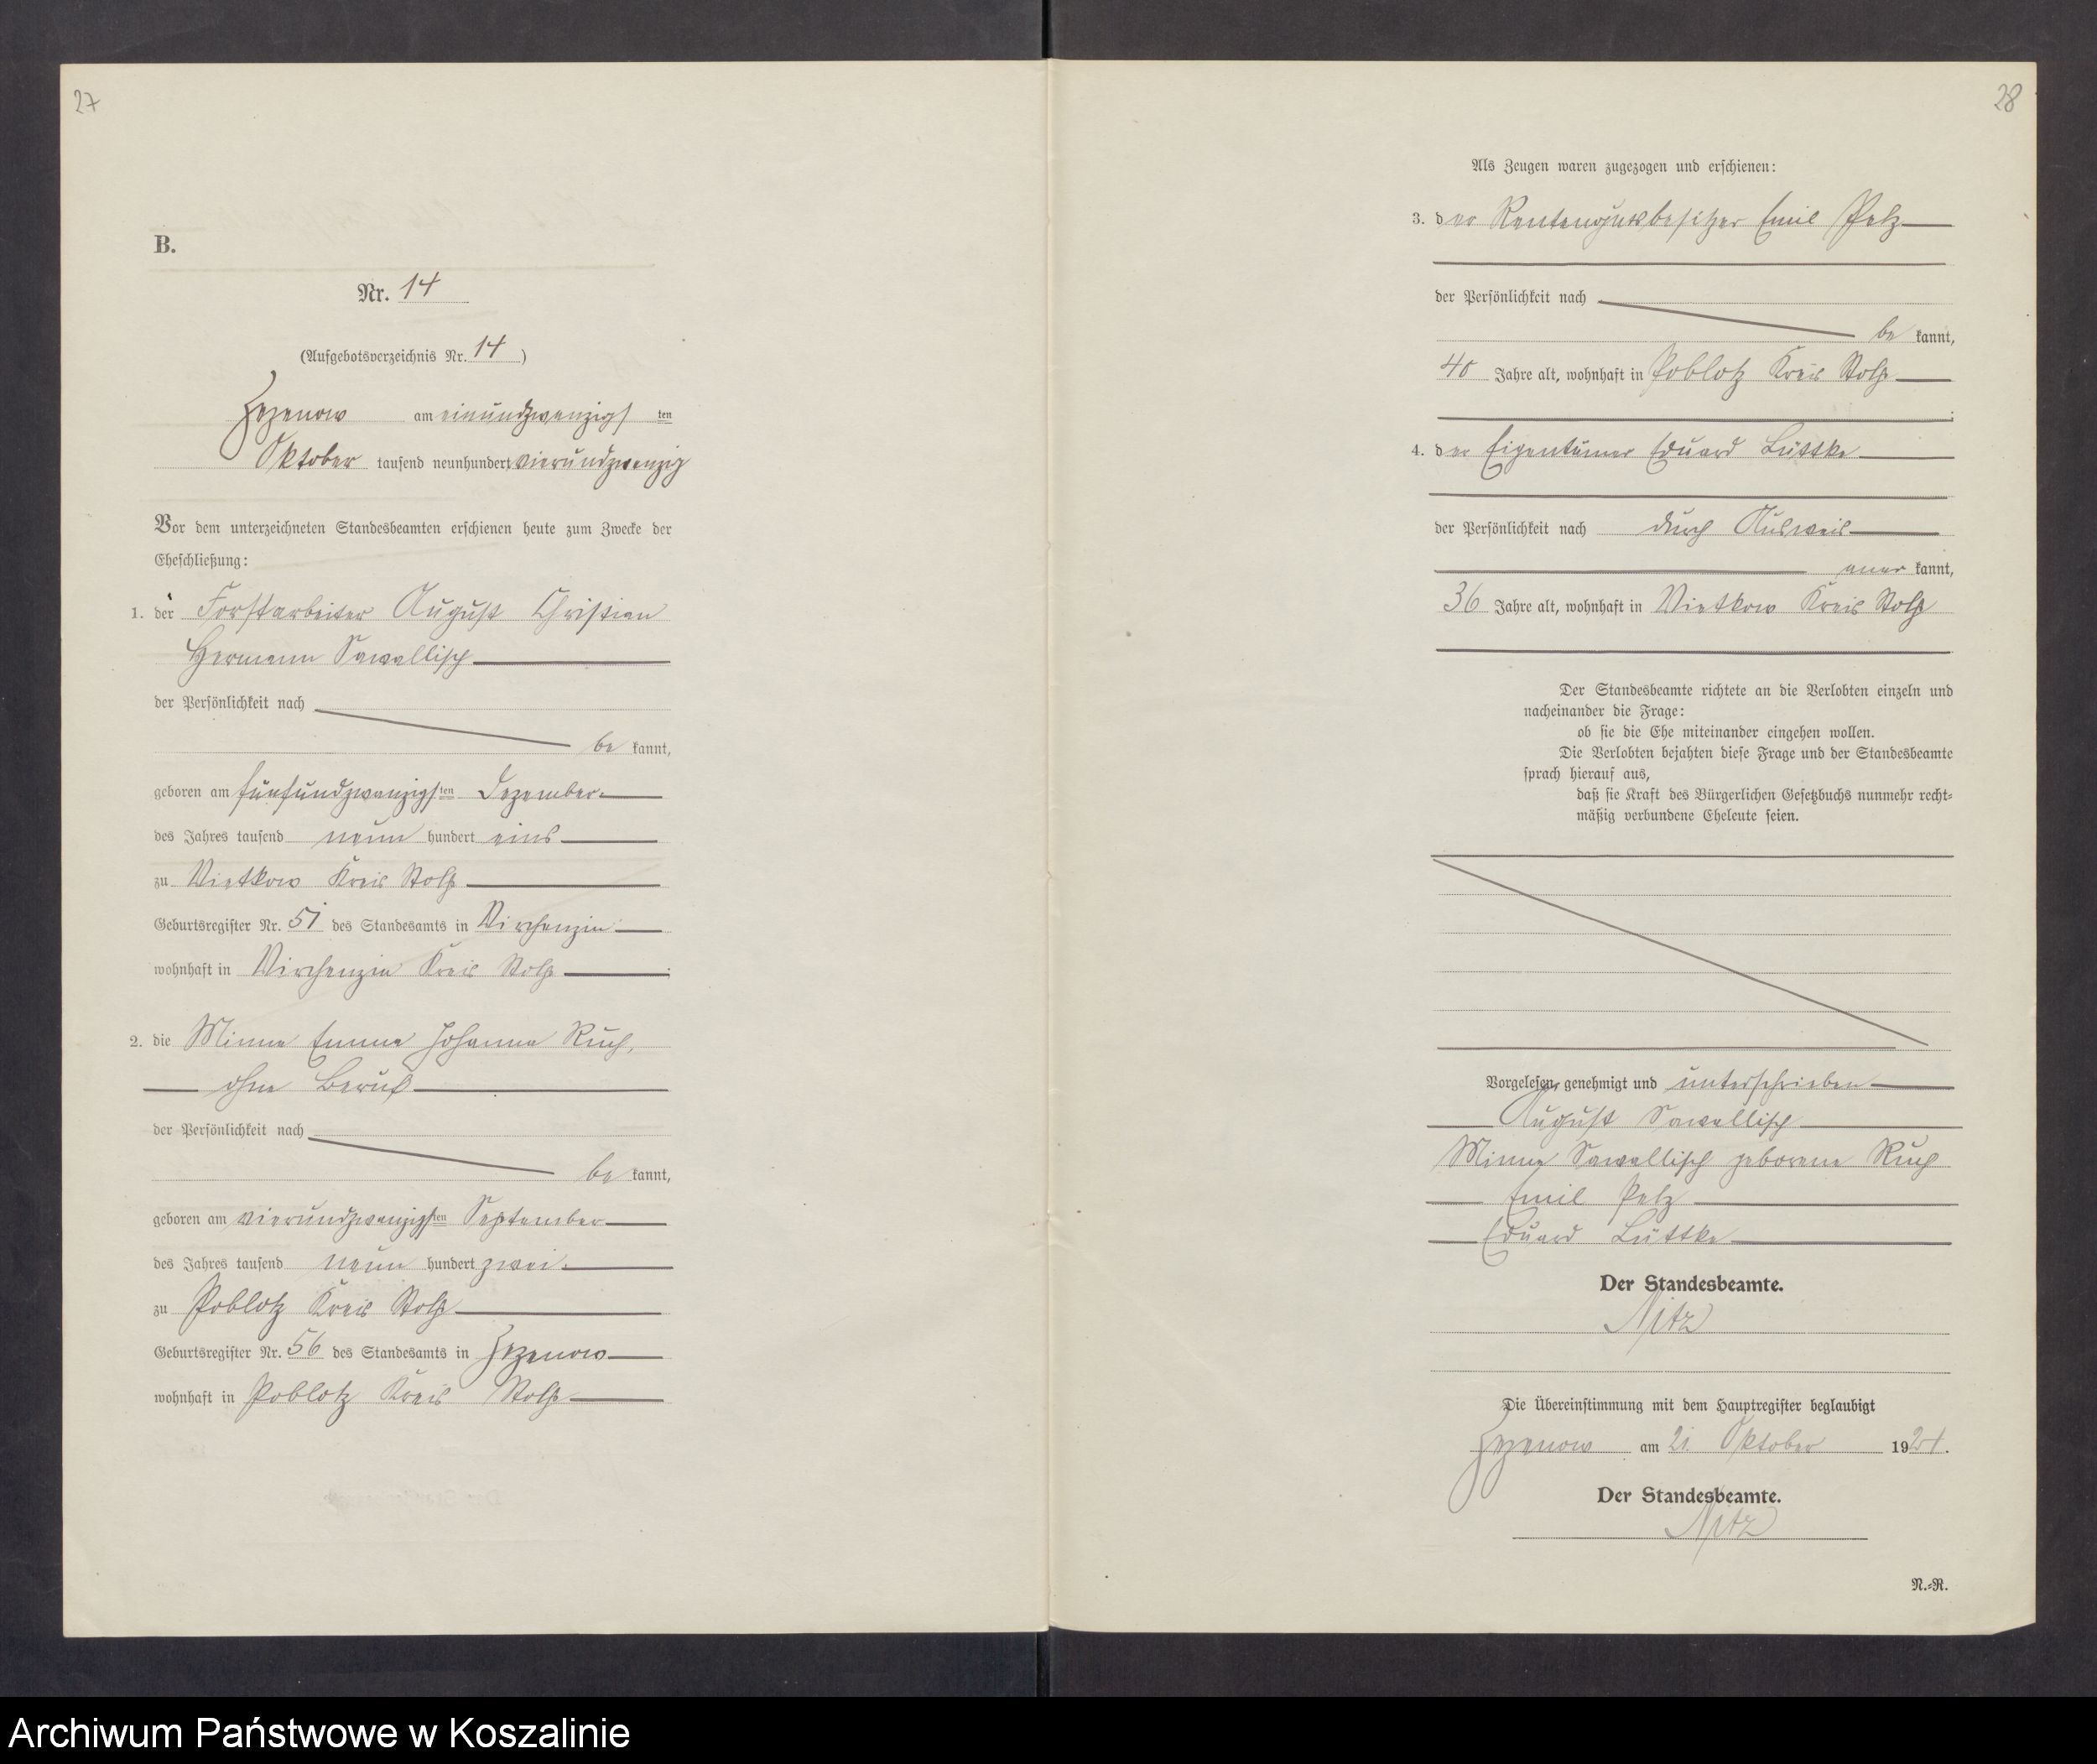 27
B.
Nr. 14
(Aufgebotsverzeichnis Nr. 14)
Zezenow am einundzwanzigsten
Oktober tausend neunhundert vierundzwanzig
Vor dem unterzeichneten Standesbeamten erschienen heute zum Zwecke der
Eheschließung:
1. der Forstarbeiter August Christian
Hermann Sawallisch
der Persönlichkeit nach
be kannt,
geboren am fünfundzwanzigsten Dezember
des Jahres tausend neun hundert eins
zu Vietkow Kreis Stolp
Geburtsregister Nr. 51 des Standesamts in Virchenzin
wohnhaft in Virchenzin Kreis Stolp;
2. die Minna Emma Johanna Ruch,
ohne Beruf
der Persönlichkeit nach
be kannt,
geboren am vierundzwanzigsten September
des Jahres tausend neun hundert zwei
zu Poblotz Kreis Stolp
Geburtsregister Nr. 56 des Standesamts in Zezenow
wohnhaft in Poblotz Kreis Stolp
28
Als Zeugen waren zugezogen und erschienen:
3. der Rentengutsbesitzer Emil Pelz
der Persönlichkeit nach
be kannt,
40 Jahre alt, wohnhaft in Poblotz Kreis Stolp
;
4. der Eigentümer Eduard Lüttke
der Persönlichkeit nach durch Ausweis
aner kannt,
36 Jahre alt, wohnhaft in Vietkow Kreis Stolp
Der Standesbeamte richtete an die Verlobten einzeln und
nacheinander die Frage:
ob sie die Ehe miteinander eingehen wollen.
Die Verlobten bejahten diese Frage und der Standesbeamte
sprach hierauf aus,
daß sie Kraft des Bürgerlichen Gesetzbuchs nunmehr recht-
mäßig verbundene Eheleute seien.
Vorgelesen, genehmigt und unterschrieben
August Sawallisch
Minna Sawallisch geborene Ruch
Emil Pelz
Eduard Lüttke
Der Standesbeamte.
Nitz
Die Übereinstimmung mit dem Hauptregister beglaubigt
Zezenow am 21. Oktober 1924.
Der Standesbeamte.
Nitz
N.-R.
Archiwum Państwowe w Koszalinie